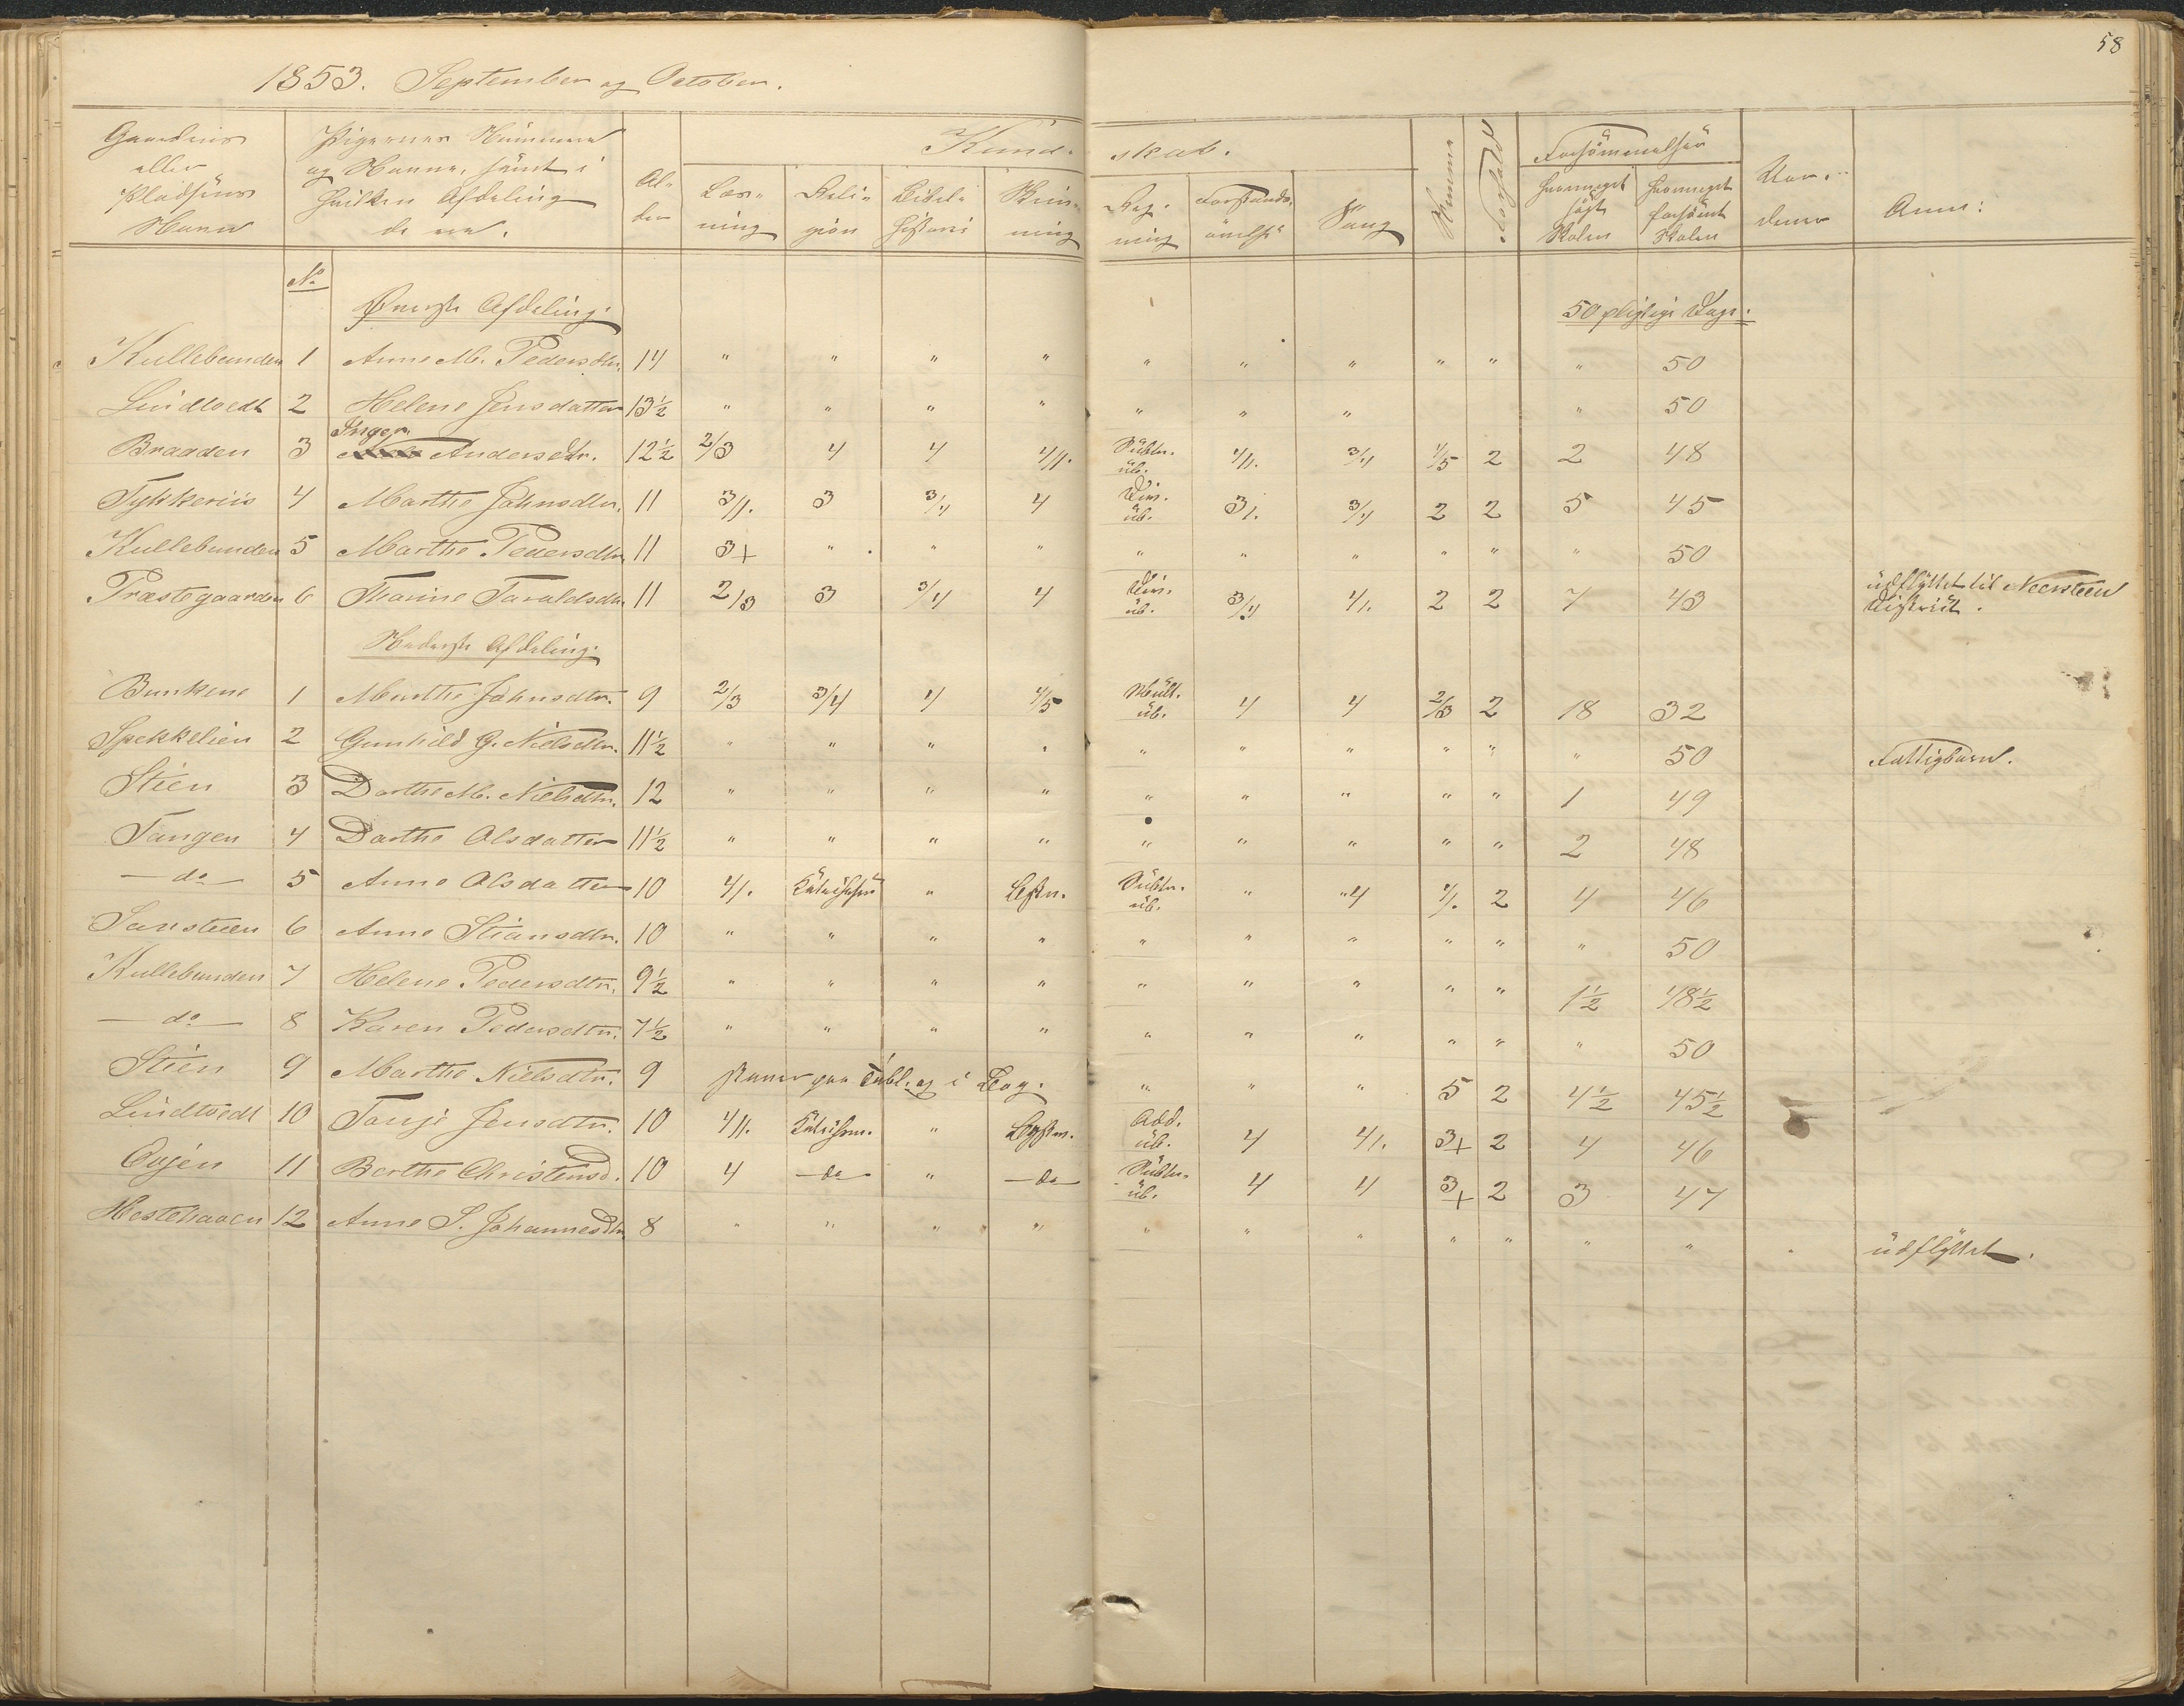 58
1853. September og October.
Gaardens eller Pladsens Navn | Pigernes Nummer og Navne, samt i hvilken Afdeling de ere. | Alder | Kundskab. | Evner | Forhold | Forsømmelser | Anm:
Læsning | Religion | Bibelhistorie | Skrivning | Regning | Forstandsøvelse | Sang | hvormeget søgt Skolen | hvormeget forsömt Skolen
No
Øverste Afdeling. 50 pligtige Dage.
Kullebunden 1 Anne M. Pedersdtr. 14 " " " " " " " " " " 50
Lindtvedt 2 Helene Jensdatter 13½ " " " " " " " " 50
Braaden 3 Inger Andersdtr. 12½ 2/3 4 4 4/. Subtr. üb. 4/. 3/4 4/5 2 2 48
Tykkeriis 4 Marthe Johnsdtr. 11 3/. 3 3/4 4 Div. üb. 3/. 3/4 2 2 5 45
Kullebunden 5 Marthe Pedersdtr. 11 3+ " " " " " " " " " 50
Præstegaarden 6 Thorine Taraldsdtr. 11 2/3 3 3/4 4 Div. üb. 3/4 4/. 2 2 7 43 üdflÿttet til Neersteen District.
Nederste Afdeling.
Bunkene 1 Marthe Johnsdtr. 9 2/3 3/4 4 4/5 Mült. üb. 4 4 2/3 2 18 32
Spekkelien 2 Gunhild G. Nielsdtr. 11½ " " " " " " " " " " 50 Fattigbarn.
Stien 3 Dorthe M. Nielsdtr. 12 " " " " " " " " " 1 49
Tangen 4 Dorthe Olsdatter 11½ " " " " " " " " " 2 48
do 5 Anne Olsdatter 10 4/. " Bgstv. Subtr. üb. " "4 4/. 2 4 46
Sansteen 6 Anne Stiansdtr. 10 " " " " " " " " " " 50
Kullebunden 7 Helene Pedersdtr. 9½ " " " " " " " " " 1½ 48½
do 8 Karen Pedersdtr. 7½ " " " " " " " " " " 50
Stien 9 Marthe Nielsdtr. 9 staver paa Tabl. og i Bog. " " " 5 2 4½ 45½
Lindtvedt 10 Tonje Jensdtr. 10 4/. " Bgstv. Add. üb. 4 4/. 3+ 2 4 46
Osjen 11 Berthe Christensd. 10 4 do " do Subtr. üb. 4 4 3+ 2 3 47
Hestehaven 12 Anne S. Johannesdtr. 8 " " " " " " " " " " " " üdflÿttet.